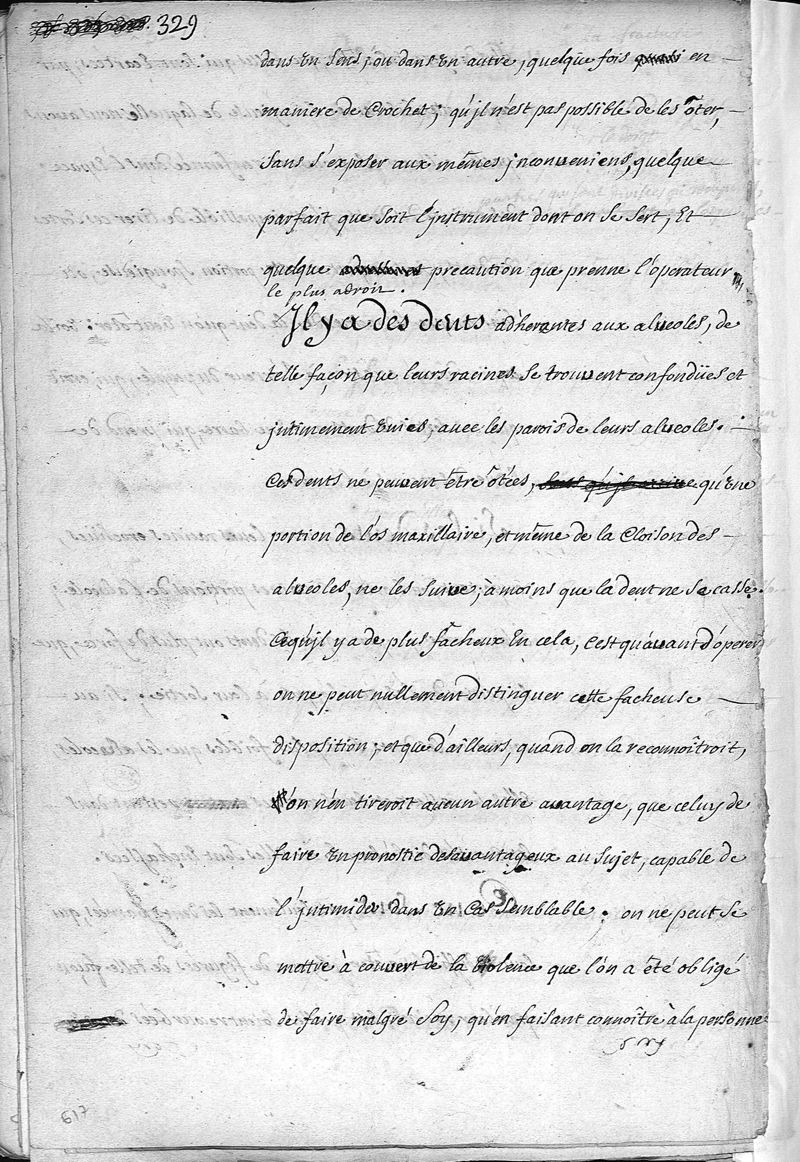 329
dans un sens, ou dans un autre, quelque fois en
maniere de Crochet; qu'jl n'est pas possible de les ôter,
sans s'exposer aux mêmes jnconveniens, quelque
parfait que soit l'jnstrument dont on se sert, Et
quelque precaution que prenne l'operateur
le plus adroit.
Il y a des dents adhérantes aux alveoles, de
telle façon que leurs racines se trouvent confondües et
jntimement unies, avec les parois de leurs alveoles.
Ces dents ne peuvent être ôtées, qu'une
portion de l'os maxillaire, et même de la Cloison des
alveoles, ne les suive; à moins que la dent ne se casse.
Ce qu'jl y a de plus fâcheux En cela, C'est qu'avant d'operer
on ne peut nullement distinguer cette facheuse
disposition; et que d'ailleurs, quand on la reconnoîtroit,
l'on n'en tireroit aucun autre avantage, que celuy de
faire un pronostic desavantageux au sujet, capable de
l'jntimider dans un Cas semblable; on ne peut se
mettre à couvert de la violence que l'on a été obligé
de faire malgré soy, qu'en faisant connoître à la personne
617